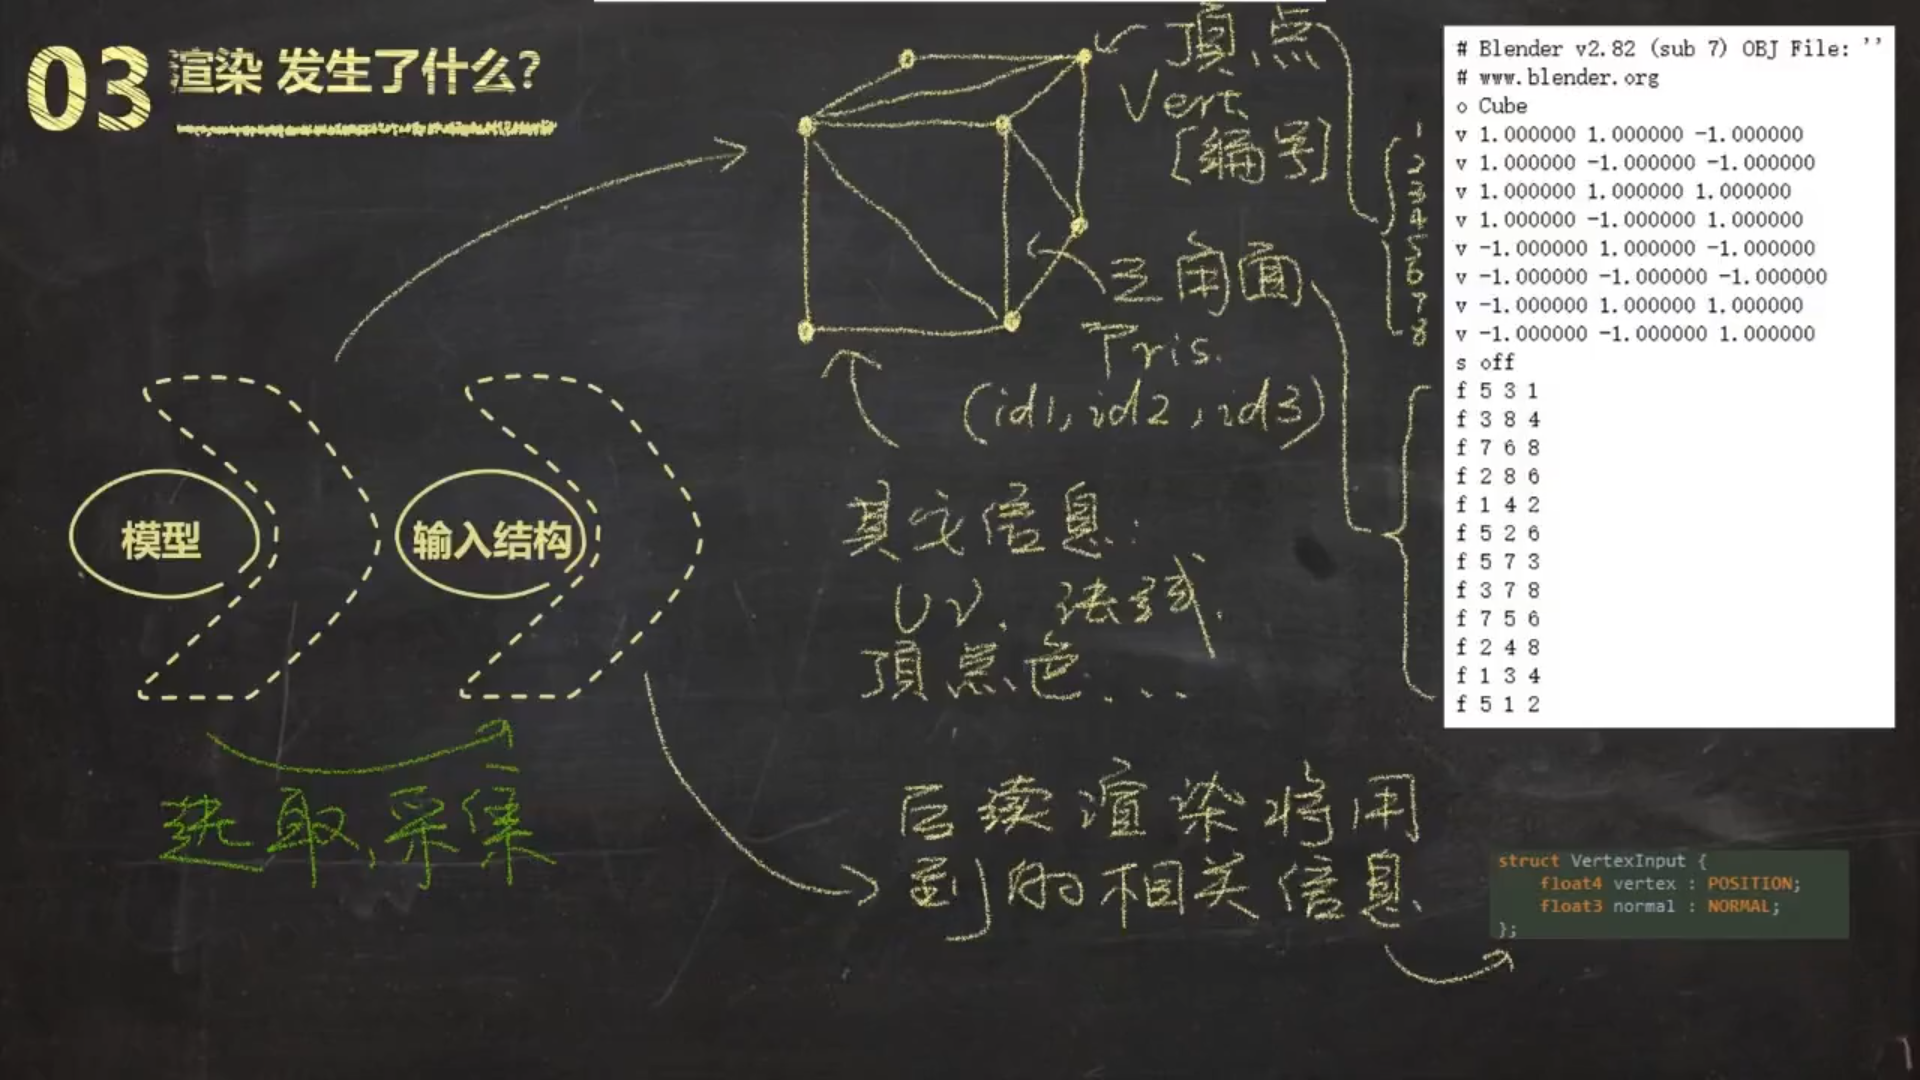 03 渲染 发生了什么?
模型
输入结构
选取,采集
頂点
Vert
[编号]
三角面
Tris.
(id1, id2, id3)
其它信息:
UV. 法线.
頂点色...
后续渲染将用
到的相关信息
1
2
3
4
5
6
7
8
# Blender v2.82 (sub 7) OBJ File: ''
# www.blender.org
o Cube
v 1.000000 1.000000 -1.000000
v 1.000000 -1.000000 -1.000000
v 1.000000 1.000000 1.000000
v 1.000000 -1.000000 1.000000
v -1.000000 1.000000 -1.000000
v -1.000000 -1.000000 -1.000000
v -1.000000 1.000000 1.000000
v -1.000000 -1.000000 1.000000
s off
f 5 3 1
f 3 8 4
f 7 6 8
f 2 8 6
f 1 4 2
f 5 2 6
f 5 7 3
f 3 7 8
f 7 5 6
f 2 4 8
f 1 3 4
f 5 1 2
struct VertexInput {
float4 vertex : POSITION;
float3 normal : NORMAL;
};